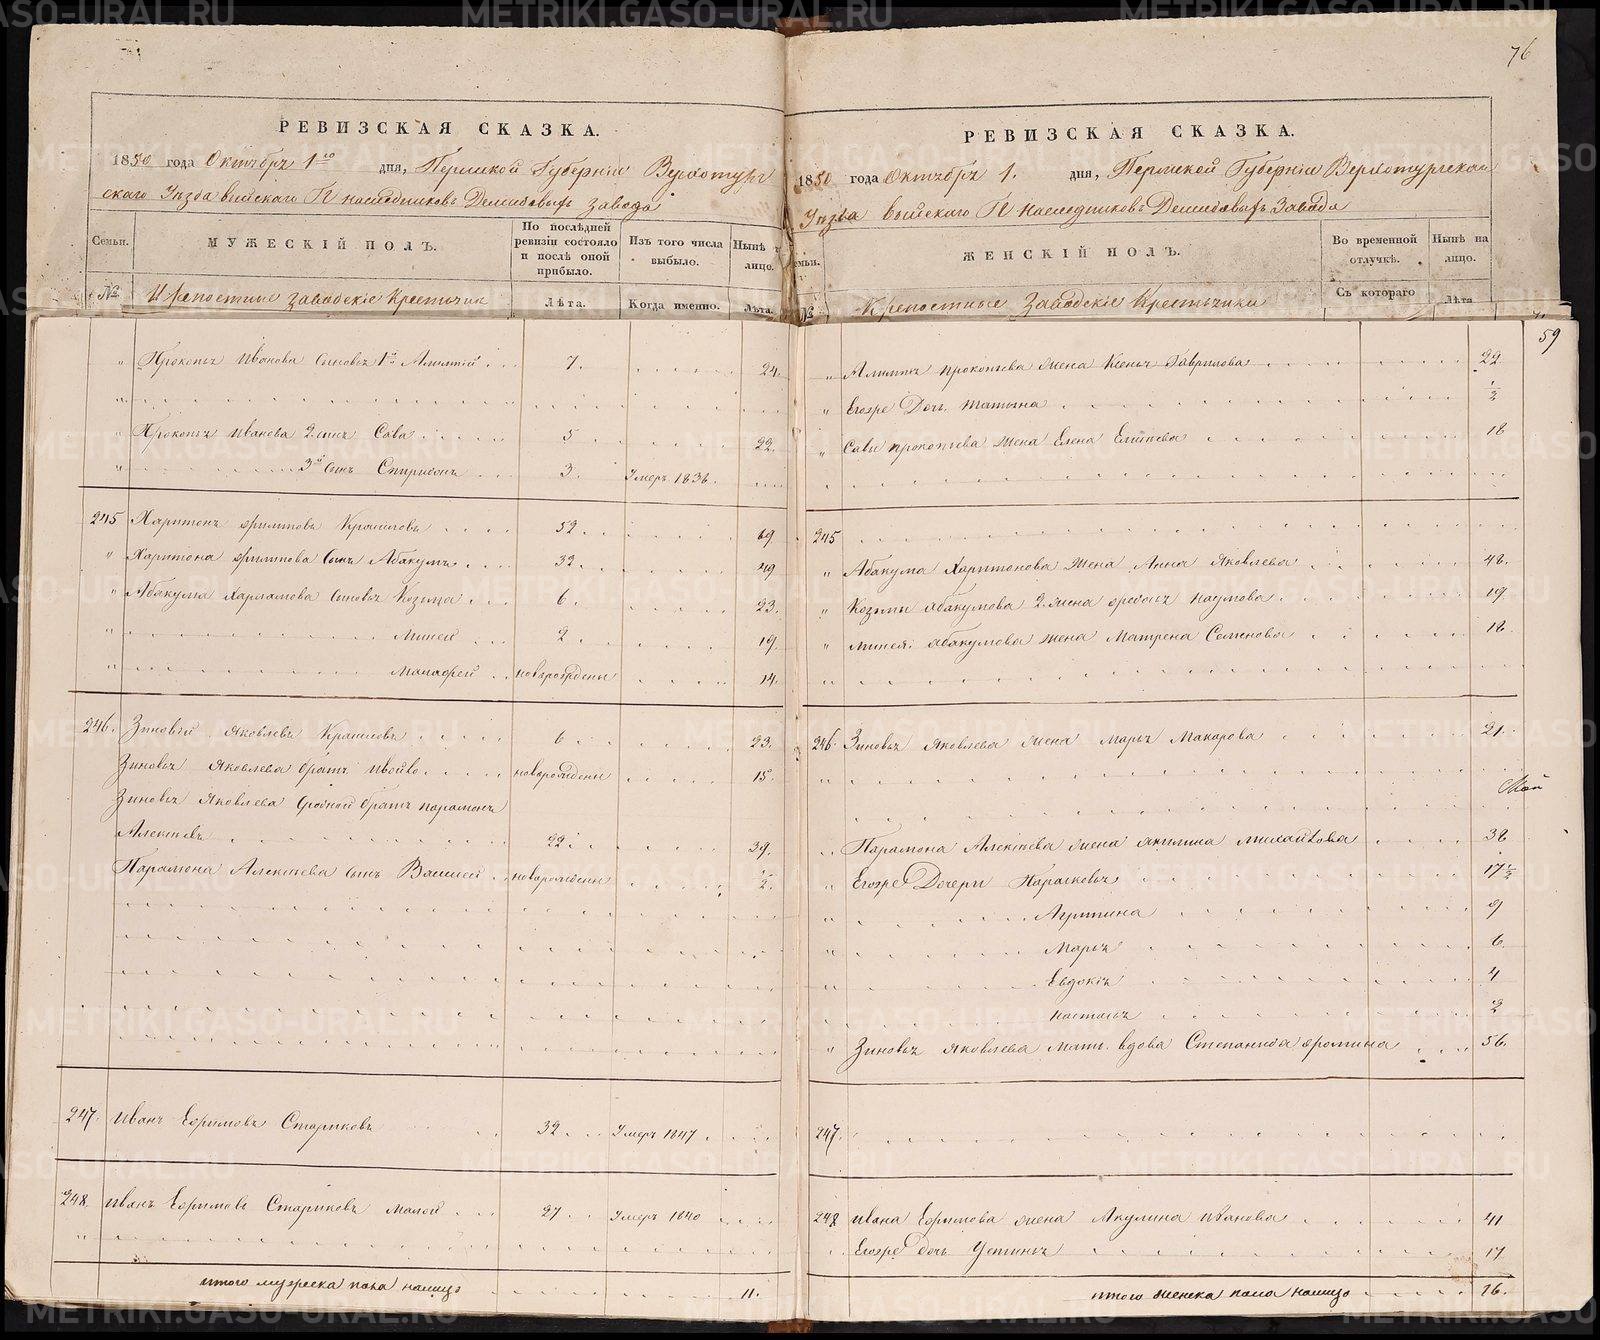 76
РЕВИЗСКАЯ СКАЗКА.
1850 года Октября 1го дня, Пермской Губерніи Верхотур
скаго Уѣзда Выйскаго Наслѣдниковъ Демидовыхъ завода
Семьи.
МУЖЕСКІЙ ПОЛЪ.
По послѣдней ревизіи состояло и послѣ оной прибыло.
Изъ того числа выбыло.
Нынѣ лицо.
№
Крепостные Заводскіе Крестьяне
Лѣта.
Когда именно.
Лѣта.
" Прокопья Иванова сыновья 1й Алимпій 7. 24.
" Прокопья Иванова 2. сынъ Сава 5 22.
" 3й сынъ Спиридонъ 3. Умеръ 1836.
245 Харитонъ Филиповъ 52 69
" Харитона Филипова сынъ Абакумъ 32 49
" Абакума Сыновья Козьма 6. 23.
" Миней 2 19.
" новорожденъ 14.
246. Зиновій Яковлевъ 6 23.
Зиновья Яковлева братъ новорожденъ 15.
Зиновья Яковлева сродной братъ Парамонъ
Алексѣевъ 22 39.
Парамона Алексѣева сынъ новорожденъ 1/2.
247. Иванъ Ефимовъ Стариковъ 32 Умеръ 1847
248. Иванъ Ефимовъ Стариковъ малой 27 Умеръ 1840
итого мужеска пола налицо 11.
РЕВИЗСКАЯ СКАЗКА.
1850 года Октября 1. дня, Пермской Губерніи Верхотурскаго
Уѣзда Выйскаго Наслѣдниковъ Демидовыхъ Завода
семьи.
ЖЕНСКІЙ ПОЛЪ.
Во временной отлучкѣ.
Нынѣ на лицо.
№
Крепостные Заводскіе Крестьянки
Съ котораго
Лѣта
59
" Алимпія Прокопьева жена Ксенья Гаврилова 22
" Егоже Дочь Татьяна 1/2
" Савы Прокопьева жена Елена 18
245
" Абакума Харитонова жена Анна Яковлева 48.
" Козьмы Абакумова 2. жена Федосья Наумова 19.
" Минея Абакумова жена Матрена Семенова 18
246. Зиновья Яковлева жена Марья Макарова 21.
Парамона Алексѣева жена Акилина Михайлова 38
" Егоже Дочери Парасковья 17 1/2
" Агрипина 9
Марья 6.
Евдокія 4
Настасья 2
" Зиновья Яковлева Мать вдова Степанида Фомина 56.
247.
248 Ивана Ефимова жена Акулина Иванова 41
Егоже дочь Устинья 17
итого женска пола налицо 16.
METRIKI.GASO-URAL.RU